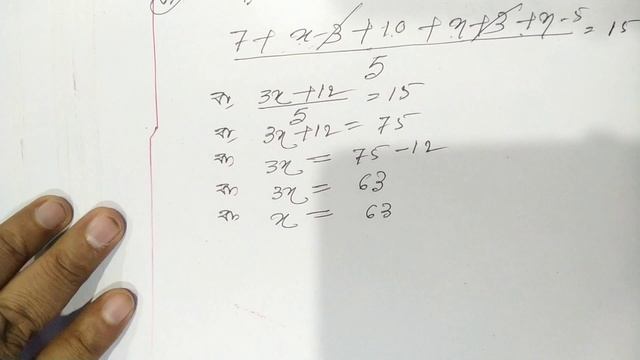 7 + x - 3 + 10 + x + 3 + x - 5 / 5 = 15
বা, 3x + 12 / 5 = 15
বা, 3x + 12 = 75
বা, 3x = 75 - 12
বা, 3x = 63
বা, x = 63